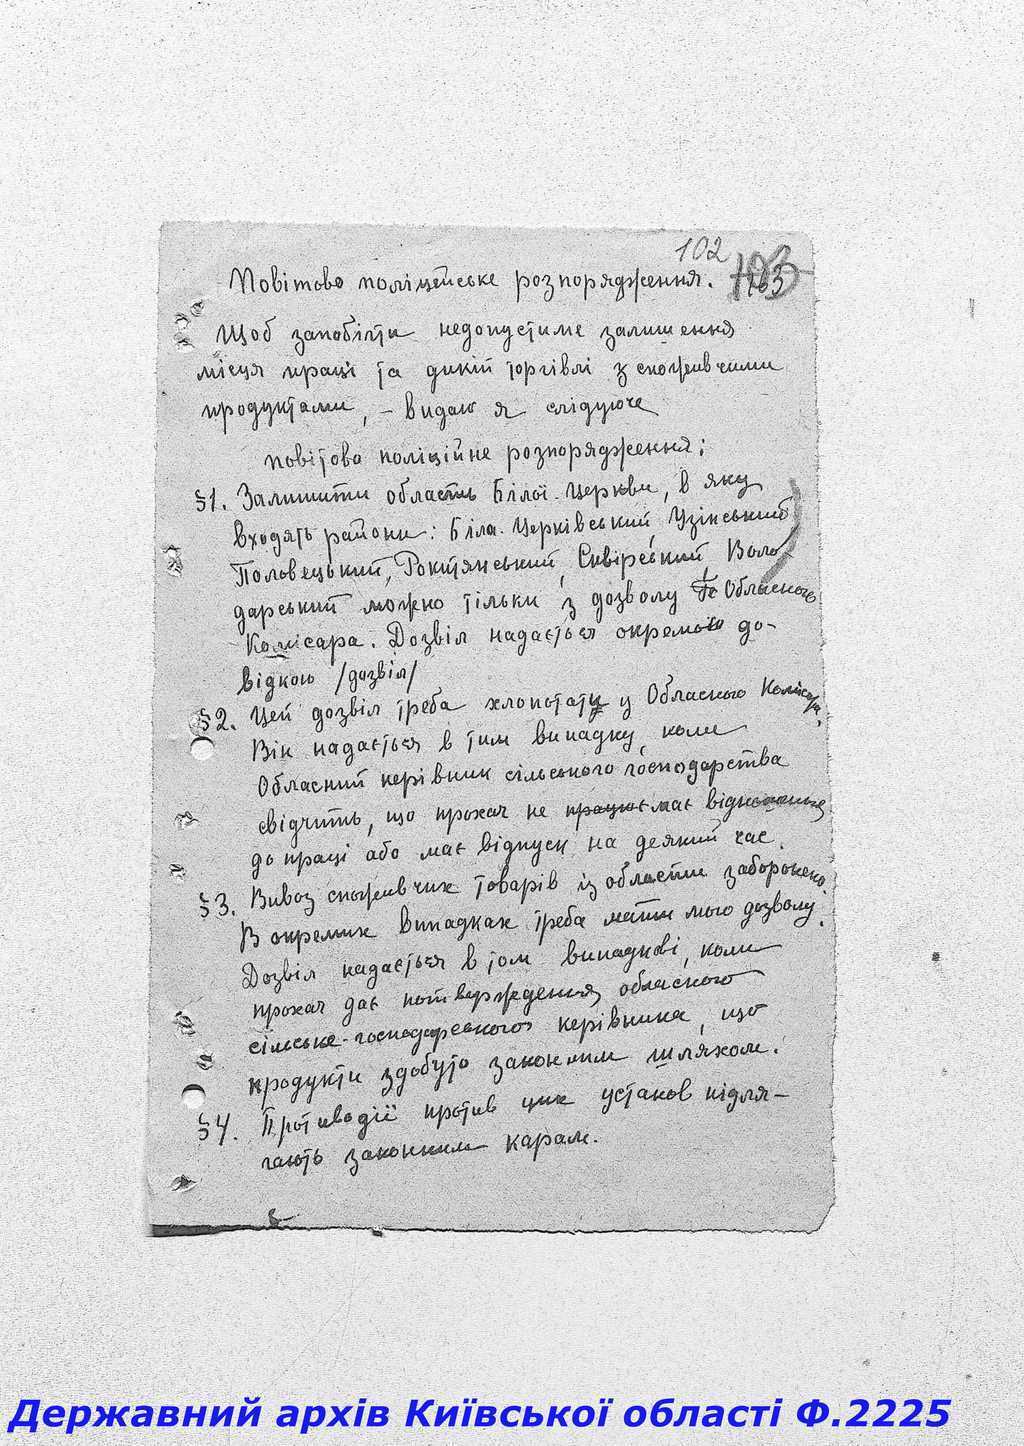 102
103
Повітово поліцейське розпорядження.
Щоб запобігти недопустиме залишення
місця праці та дикій торгівлі з споживчими
продуктами, – видаю я слідуюче
повітово поліційне розпорядження:
§1. Залишити область Білої-Церкви, в яку
входять райони: Біла-Церківський, Узінський
Половецький, Рокитянський, Сквірський, Воло-
дарський можно тільки з дозволу Обласного
Комісара. Дозвіл надається окремою до-
відкою /дозвіл/
§2. Цей дозвіл треба хлопотати у Обласного Комісара.
Він надається в тим випадку, коли
Обласний керівник сільського господарства
свідчить, що прохач не працює має відношення
до праці або має відпуск на деякий час.
§3. Вивоз споживчих товарів із области заборонено.
В окремих випадках треба мати мого дозволу.
Дозвіл надається в том випадкові, коли
прохач дає потверждення обласного
сільсько-господарського керівника, що
продукти здобуто законним шляхом.
§4. Противодії против цих установ підля-
гають законним карам.
Державний архів Київської області Ф.2225